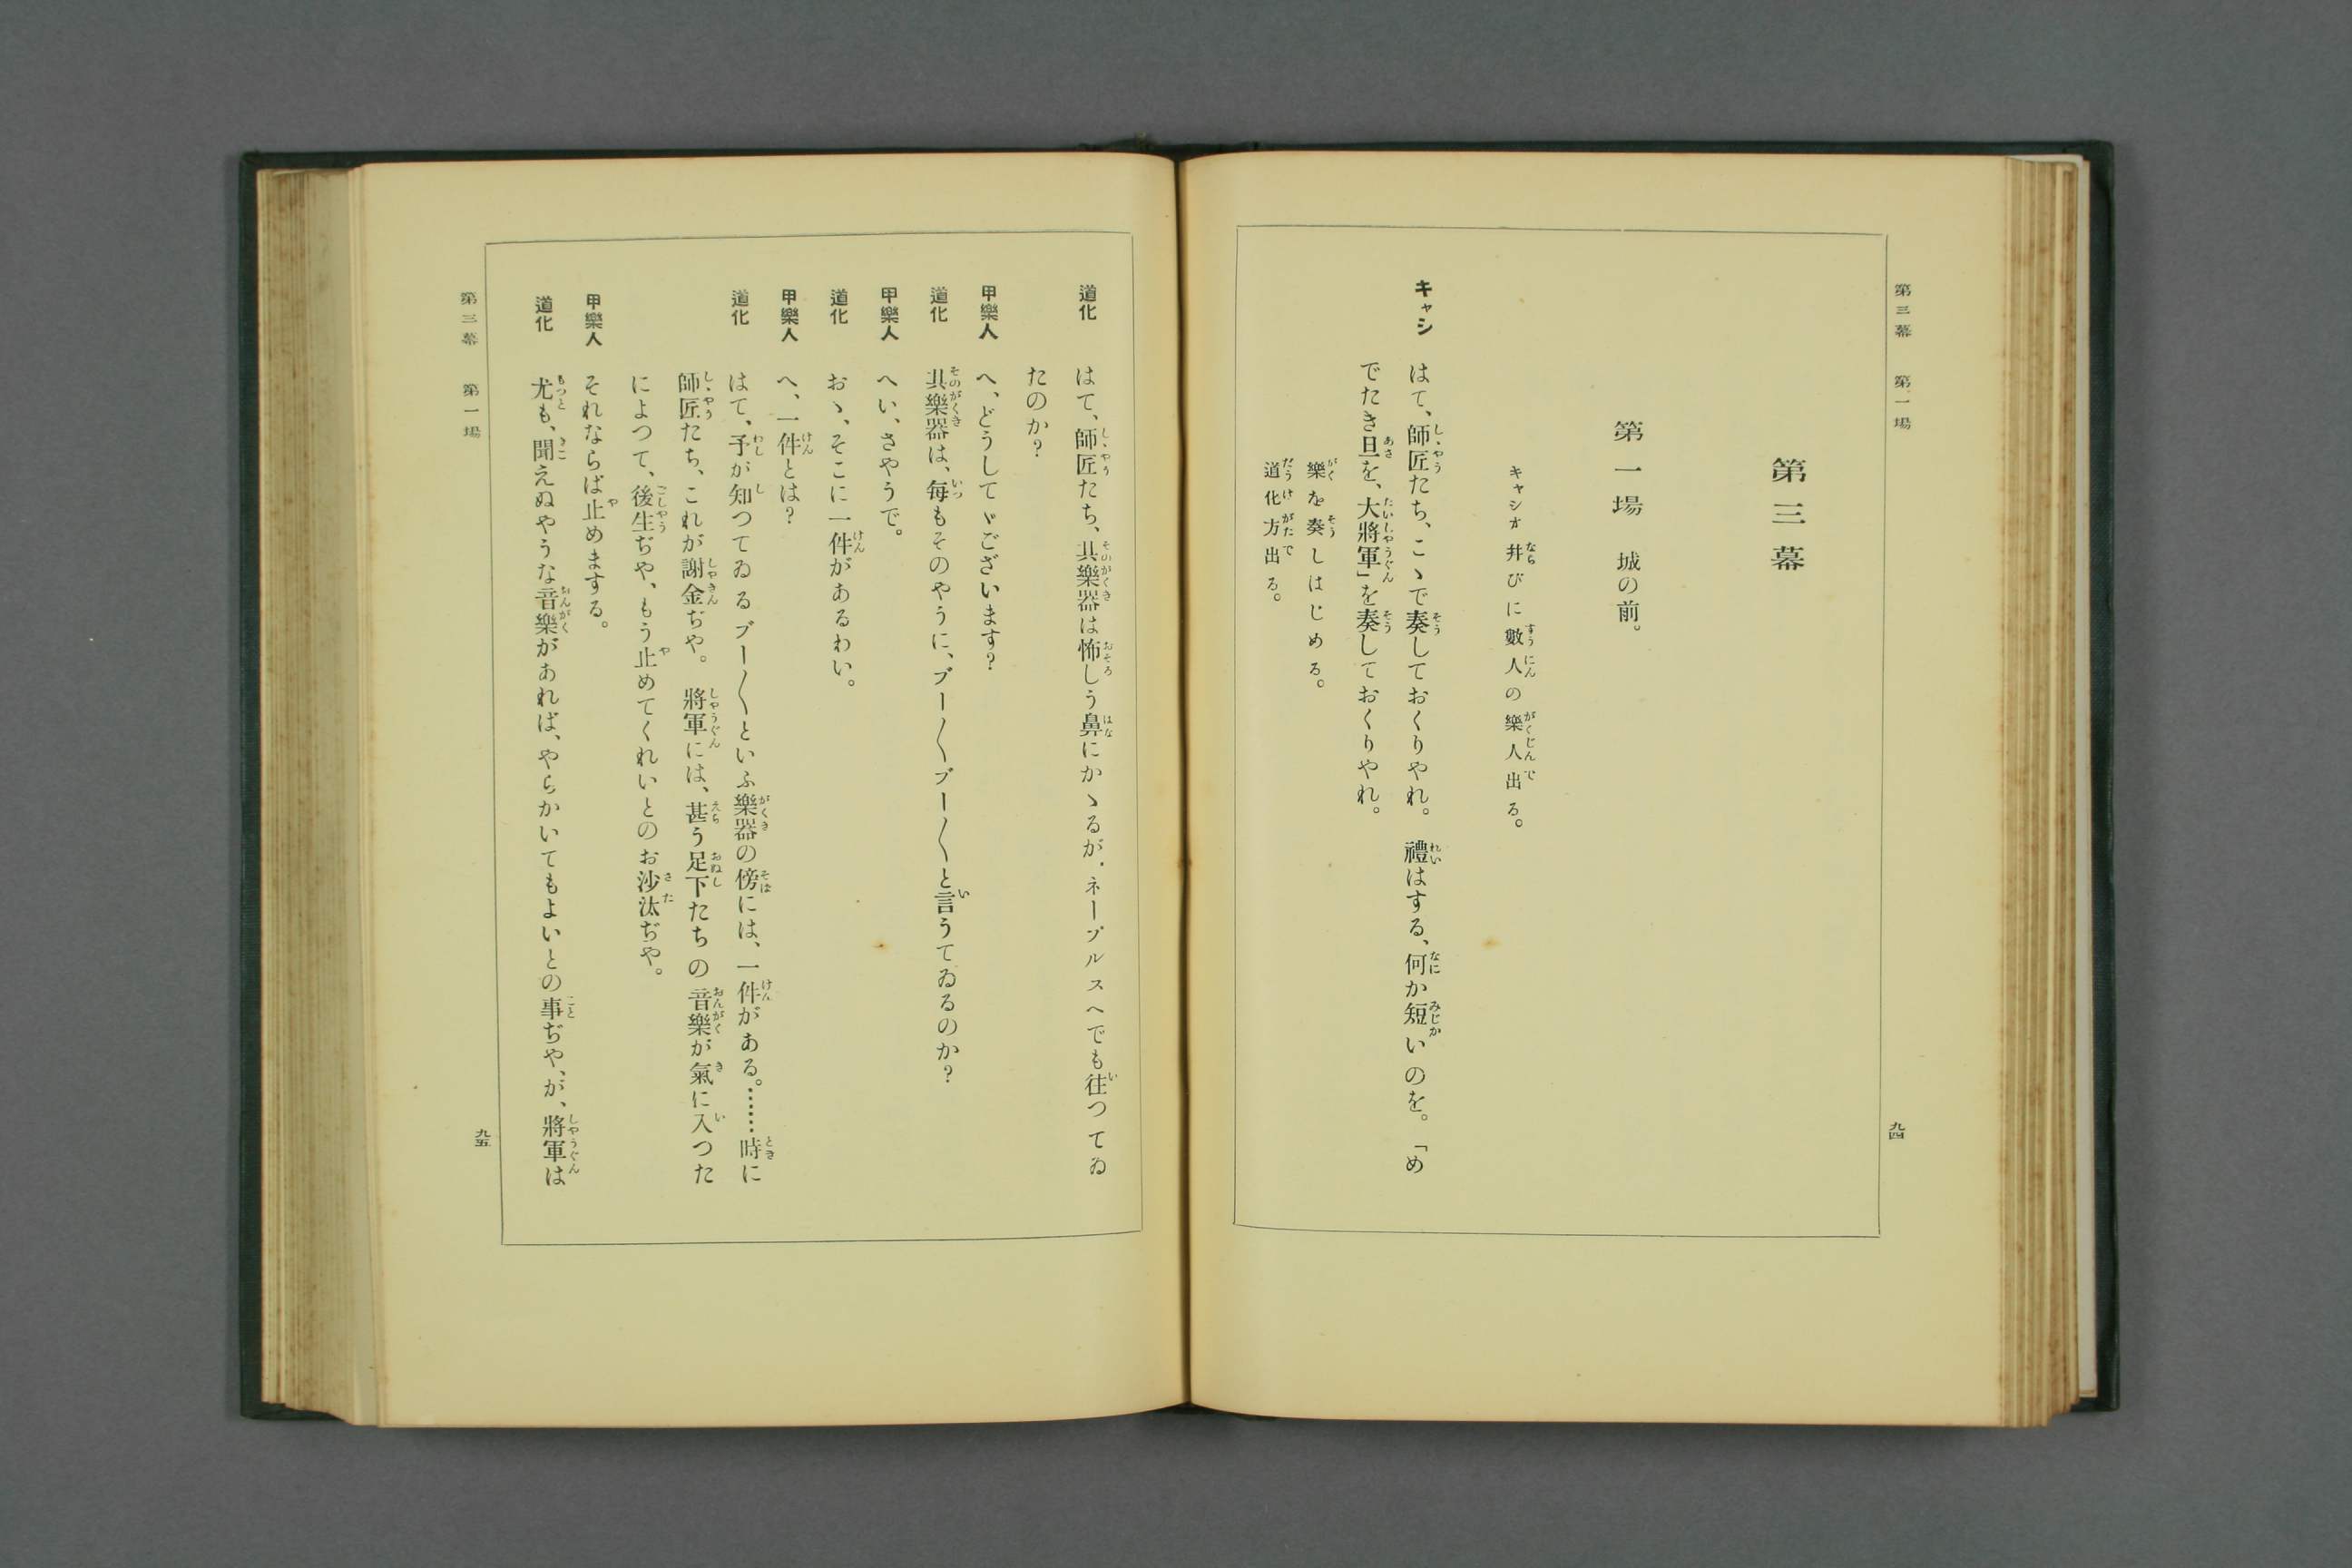 第三幕　第一場
九四
第三幕
第一場　城の前。
キャシオ幷びに數人の樂人出る。
キャシ　はて、師匠たち、こゝで奏しておくりやれ。　禮はする、何か短いのを。「め
でたき旦を、大將軍」を奏しておくりやれ。
樂を奏しはじめる。
道化方出る。
道化　はて、師匠たち、其樂器は怖しう鼻にかゝるが、ネープルスへでも往つてゐ
たのか？
甲樂人　へ、どうしてゞございます？
道化　其樂器は、每もそのやうに、ブー〳〵ブー〳〵と言うてゐるのか？
甲樂人　へい、さやうで。
道化　おゝ、そこに一件があるわい。
甲樂人　へ、一件とは？
道化　はて、予が知つてゐるブー〳〵といふ樂器の傍には、一件がある。……時に
師匠たち、これが謝金ぢや。　將軍には、甚う足下たちの音樂が氣に入つた
によつて、後生ぢや、もう止めてくれいとのお沙汰ぢや。
甲樂人　それならば止めまする。
道化　尤も、聞えぬやうな音樂があれば、やらかいてもよいとの事ぢや、が、將軍は
第三幕　第一場
九五